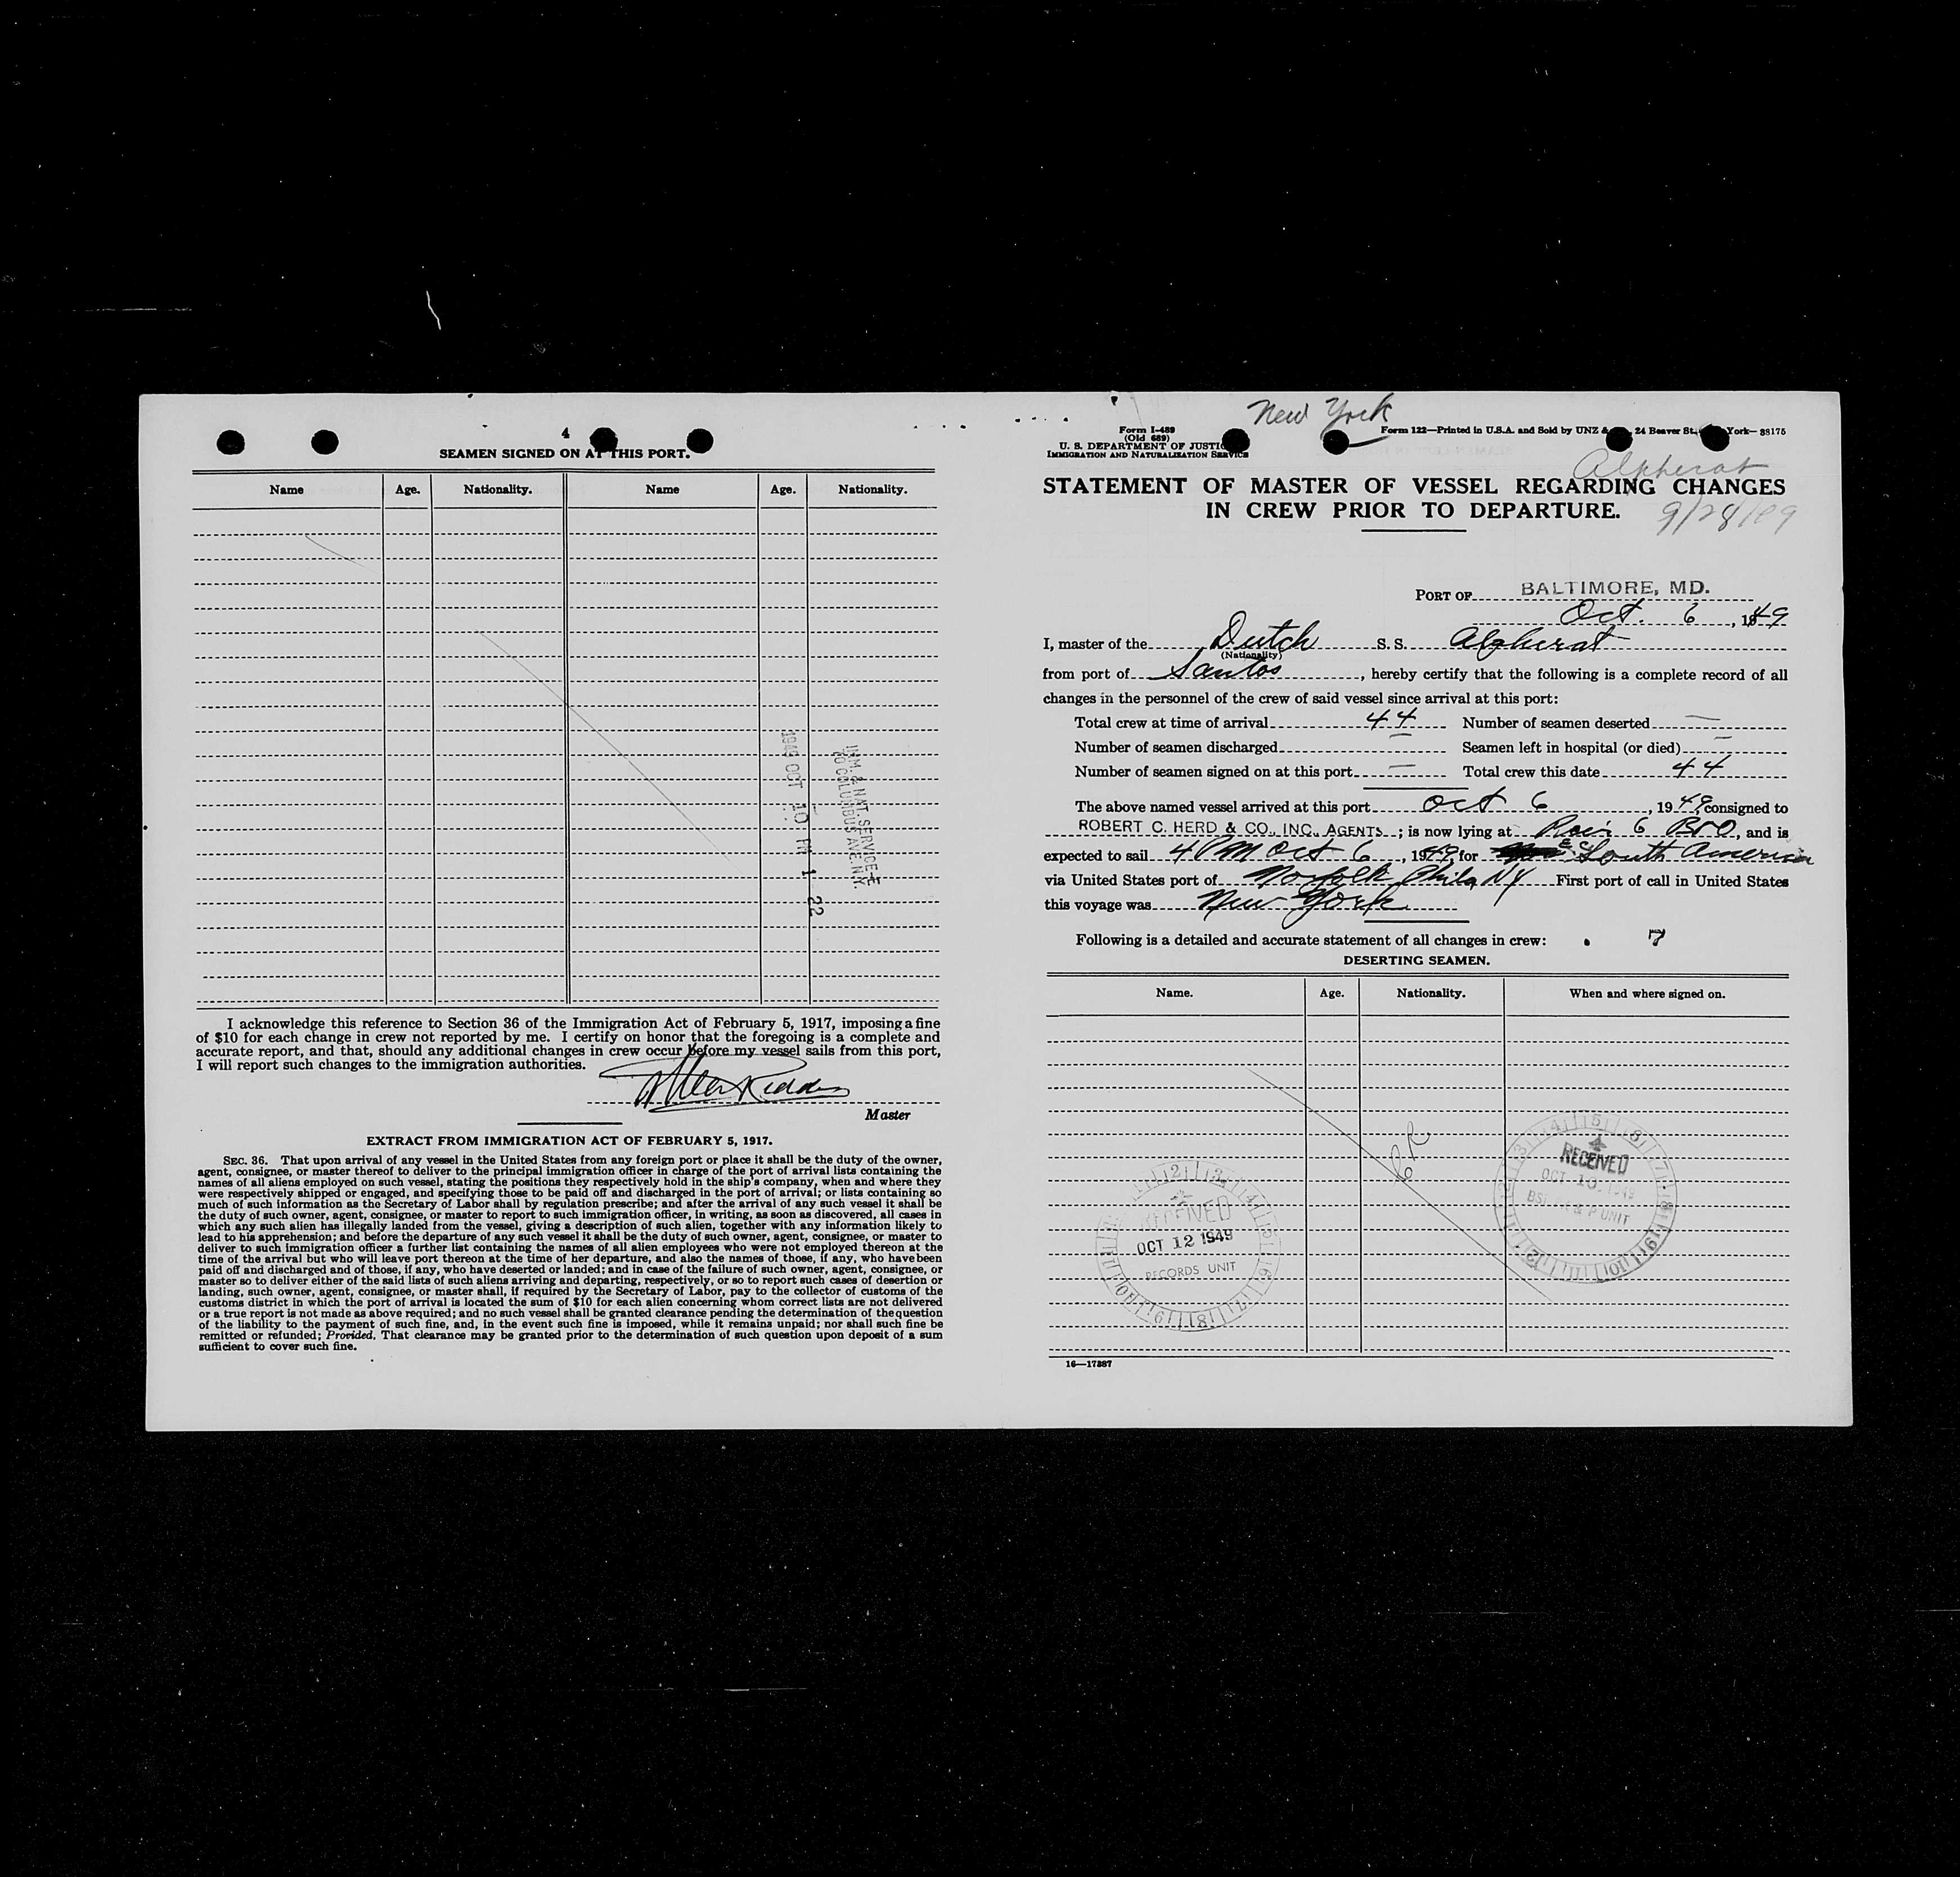 4
SEAMEN SIGNED ON AT THIS PORT.
Name Age. Nationality. Name Age. Nationality.
1949 OCT 10 PM 1 22
IMM. & NAT. SERVICE
70 COLUMBUS AVE. N.Y.
I acknowledge this reference to Section 36 of the Immigration Act of February 5, 1917, imposing a fine
of $10 for each change in crew not reported by me. I certify on honor that the foregoing is a complete and
accurate report, and that, should any additional changes in crew occur before my vessel sails from this port,
I will report such changes to the immigration authorities.
Master
EXTRACT FROM IMMIGRATION ACT OF FEBRUARY 5, 1917.
SEC. 36. That upon arrival of any vessel in the United States from any foreign port or place it shall be the duty of the owner,
agent, consignee, or master thereof to deliver to the principal immigration officer in charge of the port of arrival lists containing the
names of all aliens employed on such vessel, stating the positions they respectively hold in the ship's company, when and where they
were respectively shipped or engaged, and specifying those to be paid off and discharged in the port of arrival; or lists containing so
much of such information as the Secretary of Labor shall by regulation prescribe; and after the arrival of any such vessel it shall be
the duty of such owner, agent, consignee, or master to report to such immigration officer, in writing, as soon as discovered, all cases in
which any such alien has illegally landed from the vessel, giving a description of such alien, together with any information likely to
lead to his apprehension; and before the departure of any such vessel it shall be the duty of such owner, agent, consignee, or master to
deliver to such immigration officer a further list containing the names of all alien employees who were not employed thereon at the
time of the arrival but who will leave port thereon at the time of her departure, and also the names of those, if any, who have been
paid off and discharged and of those, if any, who have deserted or landed; and in case of the failure of such owner, agent, consignee, or
master so to deliver either of the said lists of such aliens arriving and departing, respectively, or so to report such cases of desertion or
landing, such owner, agent, consignee, or master shall, if required by the Secretary of Labor, pay to the collector of customs of the
customs district in which the port of arrival is located the sum of $10 for each alien concerning whom correct lists are not delivered
or a true report is not made as above required; and no such vessel shall be granted clearance pending the determination of the question
of the liability to the payment of such fine, and, in the event such fine is imposed, while it remains unpaid; nor shall such fine be
remitted or refunded; Provided, That clearance may be granted prior to the determination of such question upon deposit of a sum
sufficient to cover such fine.
New York
Form I-489
(Old 689)
U. S. DEPARTMENT OF JUSTICE
IMMIGRATION AND NATURALIZATION SERVICE
Form 122—Printed in U.S.A. and Sold by UNZ & 24 Beaver St., York—38175
Alpherat
STATEMENT OF MASTER OF VESSEL REGARDING CHANGES
IN CREW PRIOR TO DEPARTURE.
9/28/49
PORT OF BALTIMORE, MD.
Oct. 6, 1949
I, master of the Dutch S. S. Alpherat
(Nationality)
from port of Santos, hereby certify that the following is a complete record of all
changes in the personnel of the crew of said vessel since arrival at this port:
Total crew at time of arrival 44 Number of seamen deserted —
Number of seamen discharged — Seamen left in hospital (or died) —
Number of seamen signed on at this port — Total crew this date 44
The above named vessel arrived at this port Oct 6, 1949, consigned to
ROBERT C. HERD & CO., INC., AGENTS; is now lying at 6 B&O, and is
expected to sail 4 PM Oct 6, 1949, for E. C. South America
via United States port of Norfolk Phila NY First port of call in United States
this voyage was New York
Following is a detailed and accurate statement of all changes in crew: 7
DESERTING SEAMEN.
Name. Age. Nationality. When and where signed on.
RECEIVED
OCT 10 1949
UNIT
RECEIVED
OCT 12 1949
RECORDS UNIT
16—17387